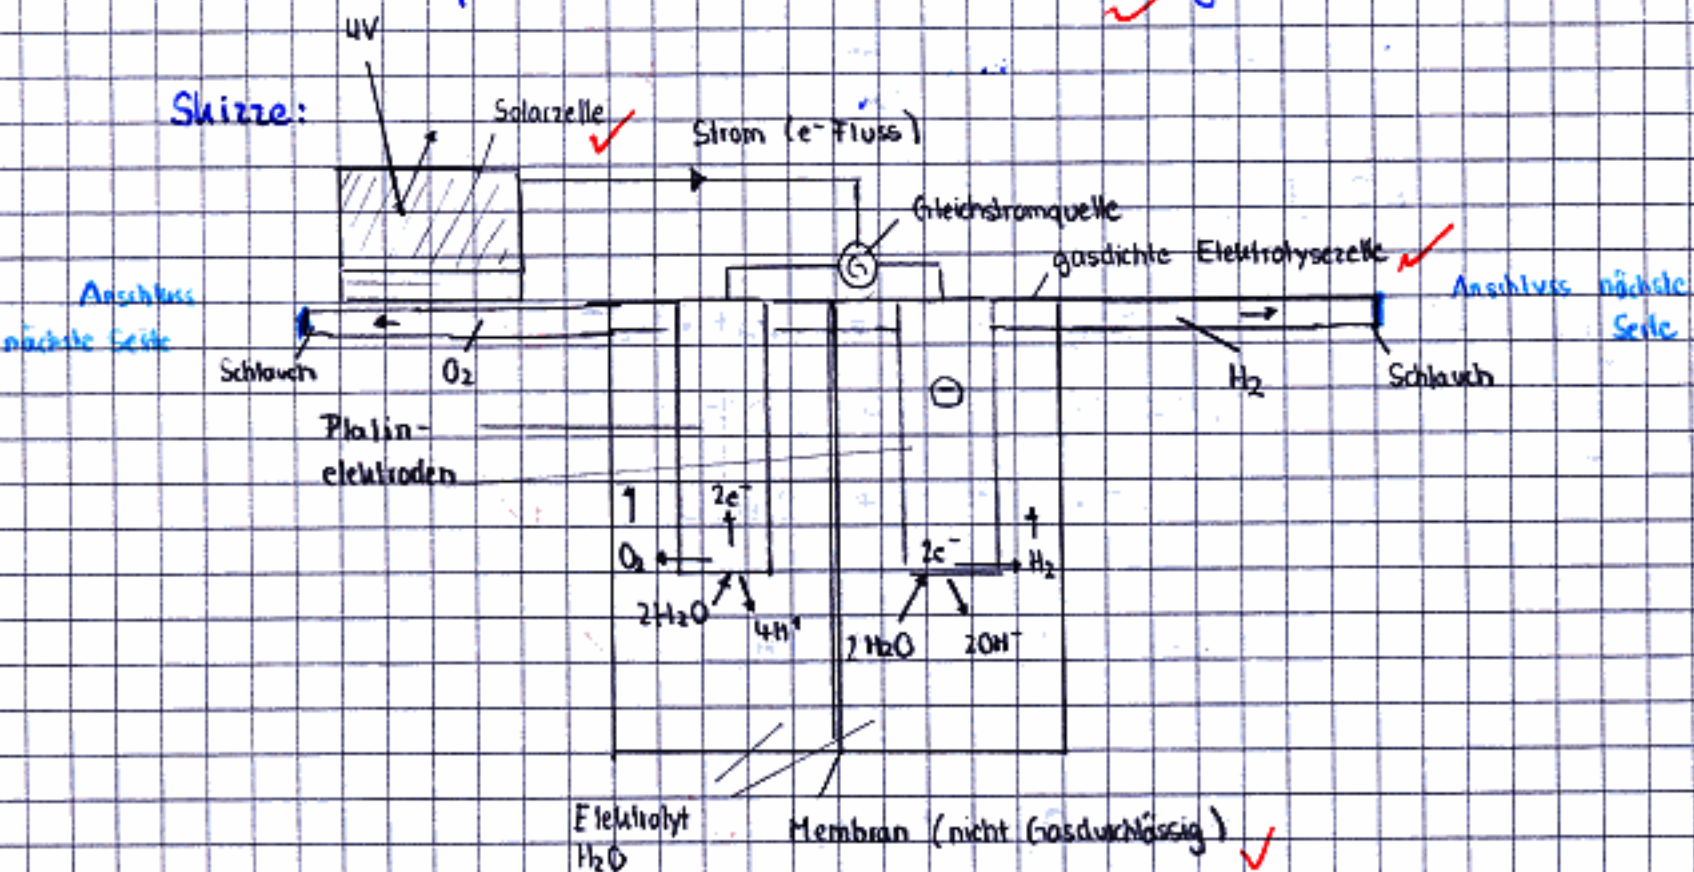 UV
Skizze:
Solarzelle
Strom (e⁻ Fluss)
Gleichstromquelle
G
gasdichte Elektrolysezelle
Anschluss
nächste Seite
Anschluss nächste
Seite
Schlauch
O₂
H₂
Schlauch
⊖
Platin-
elektroden
2e⁻
O₂
2e⁻
H₂
2H₂O
4H⁺
2H₂O
2OH⁻
Elektrolyt
H₂O
Membran (nicht Gasdurchlässig)